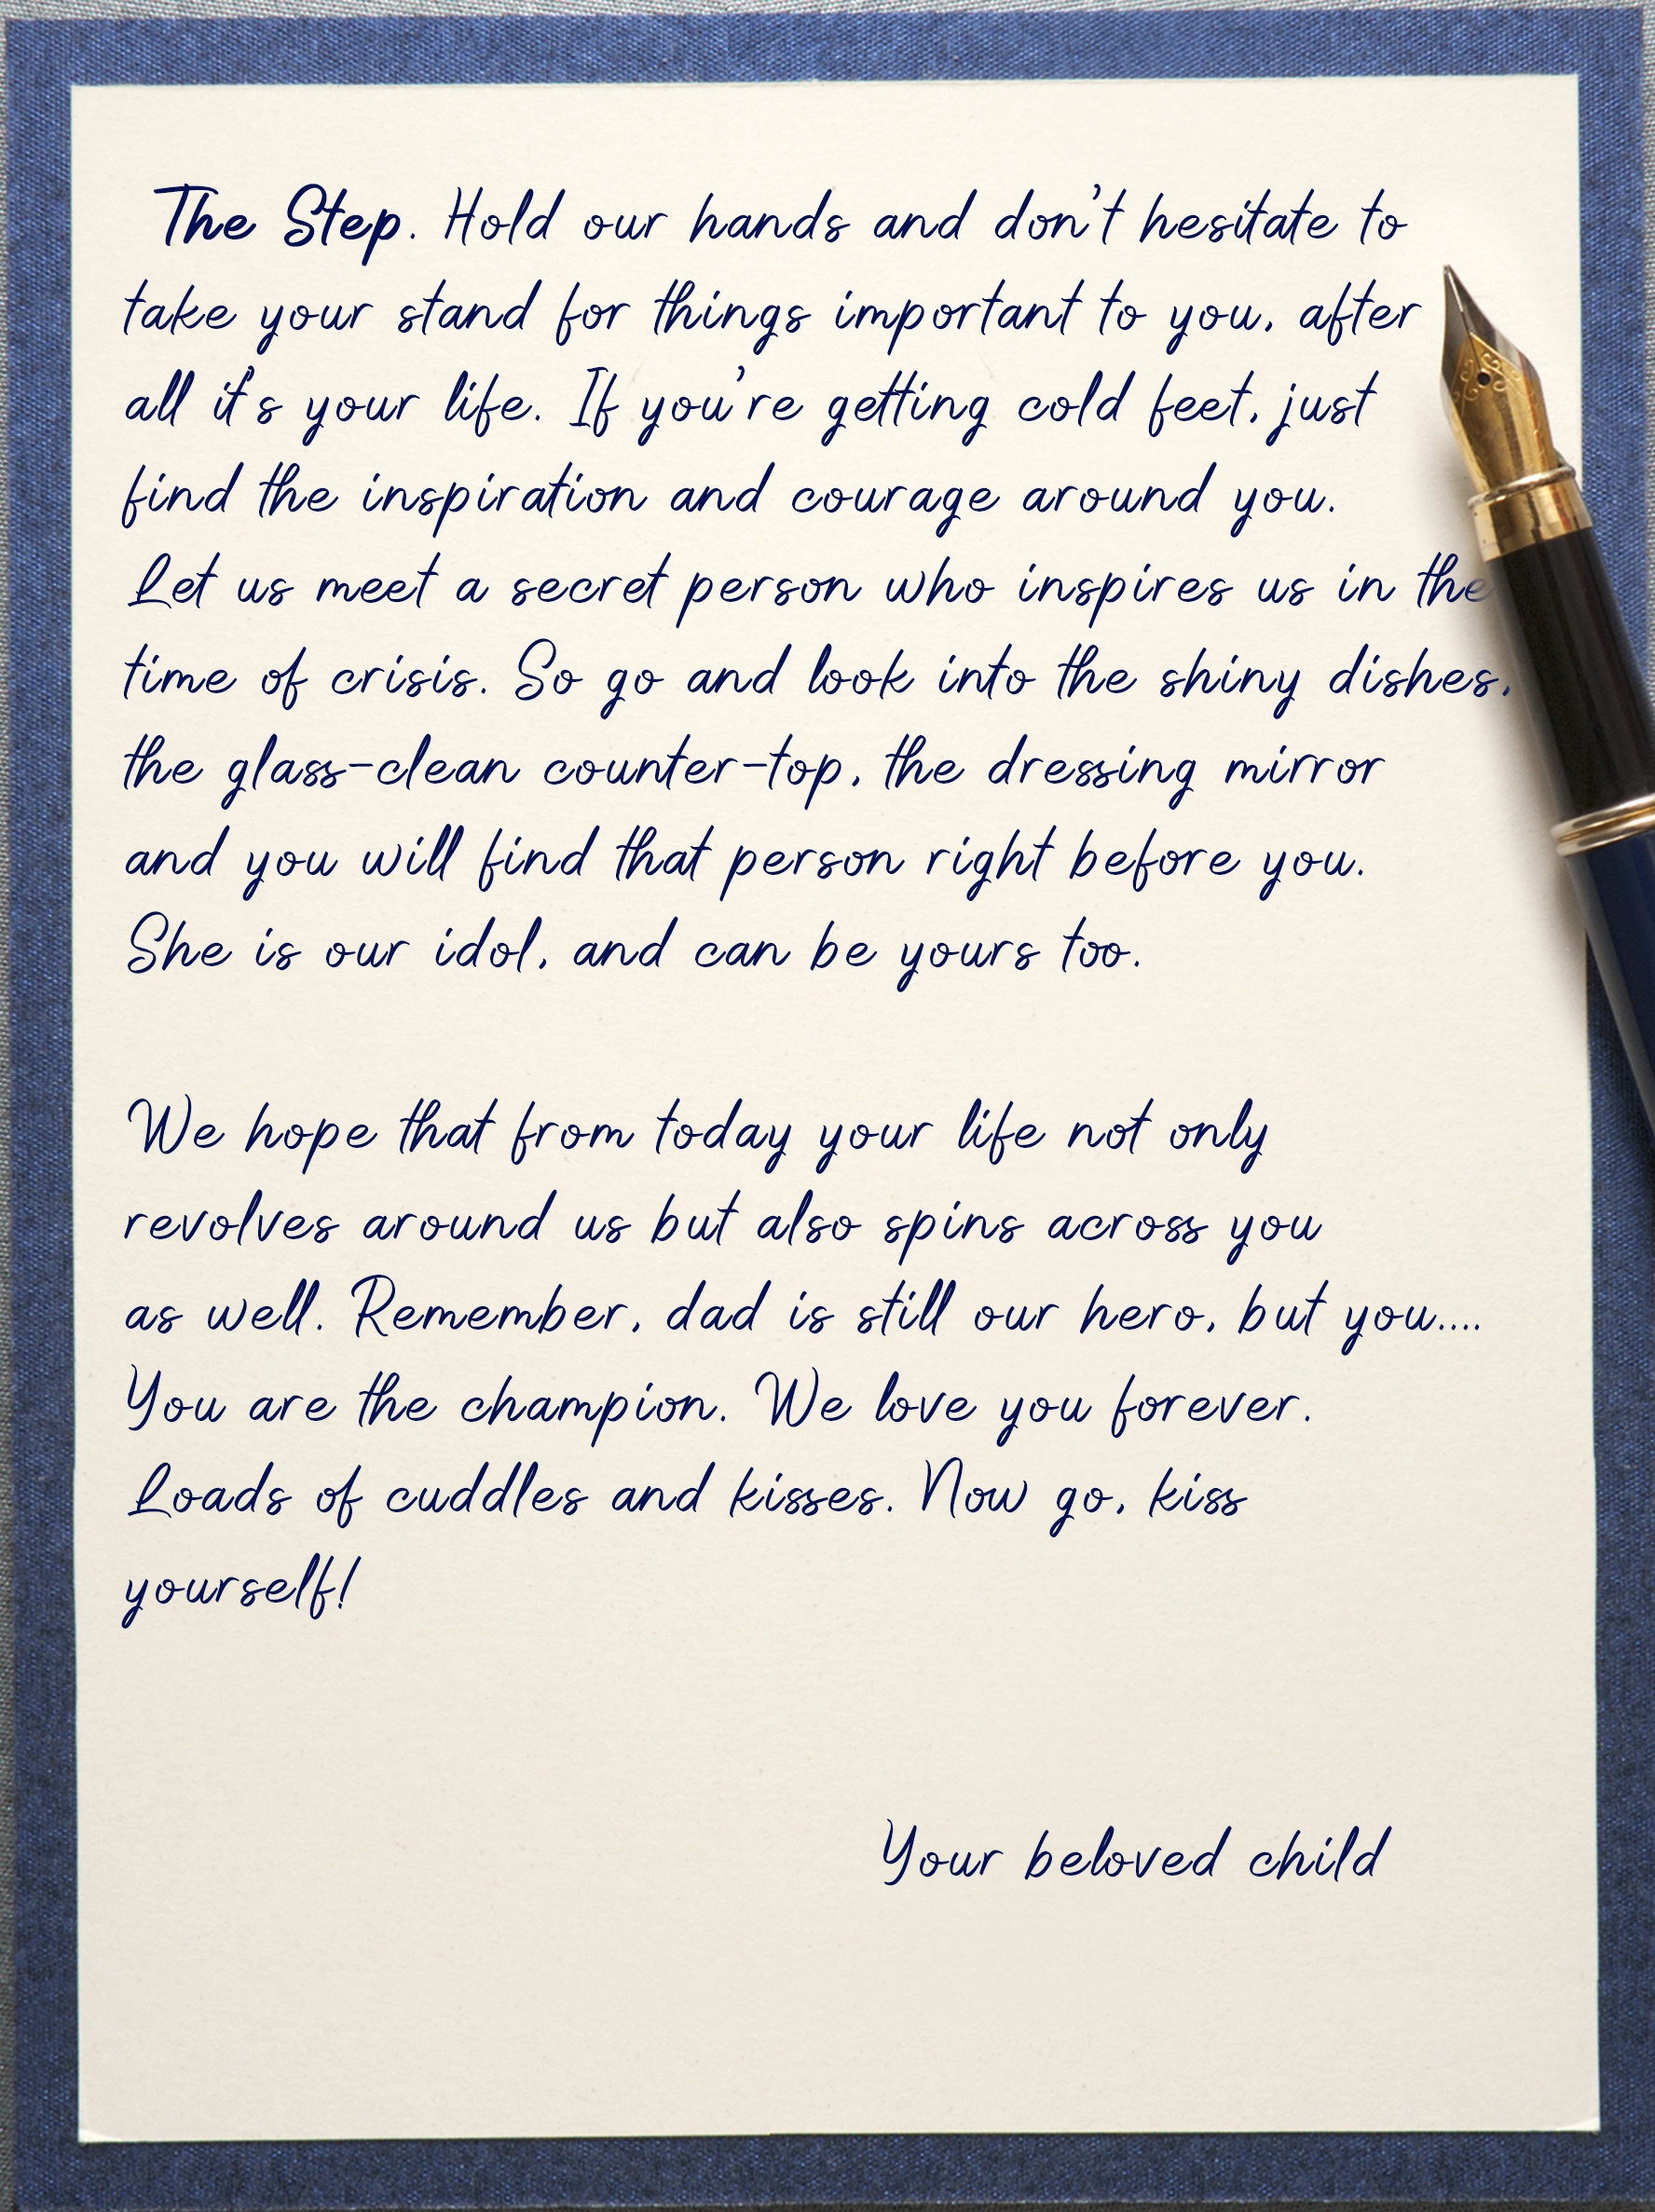 The Step. Hold our hands and don't hesitate to
take your stand for things important to you, after
all it's your life. If you're getting cold feet, just
find the inspiration and courage around you.
Let us meet a secret person who inspires us in the
time of crisis. So go and look into the shiny dishes,
the glass-clean counter-top, the dressing mirror
and you will find that person right before you.
She is our idol, and can be yours too.
We hope that from today your life not only
revolves around us but also spins across you
as well. Remember, dad is still our hero, but you....
You are the champion. We love you forever.
Loads of cuddles and kisses. Now go, kiss
yourself!
Your beloved child